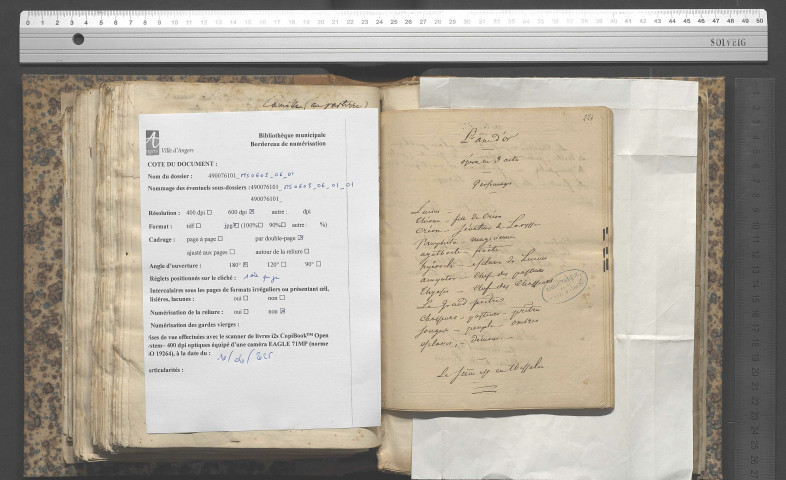 0 1 2 3 4 5 6 7 8 9 10 11 12 13 14 15 16 17 18 19 20 21 22 23 24 25 26 27 28 29 30 31 32 33 34 35 36 37 38 39 40 41 42 43 44 45 46 47 48 49 50
SOLVEIG
Camille (au
Ville d'Angers
Bibliothèque municipale
Bordereau de numérisation
COTE DU DOCUMENT :
Nom du dossier : 490076101_MS0603_06_01
Nommage des éventuels sous-dossiers : 490076101_MS0603_06_01_01
490076101_
Résolution : 400 dpi ☐ 600 dpi ☒ autre : dpi
Format : tiff ☐ jpg ☒ (100% ☐ 90% ☐ autre %)
Cadrage : page à page ☐ par double-page ☒
ajusté aux pages ☐ autour de la reliure ☐
Angle d'ouverture : 180° ☒ 120° ☐ 90° ☐
Réglets positionnés sur le cliché :
Intercalaires sous les pages de formats irréguliers ou présentant
lisières, lacunes : oui ☐ non ☐
Numérisation de la reliure : oui ☐ non ☒
Numérisation des gardes vierges :
ises de vue effectuées avec le scanner de livres i2s CopiBook™ Open
stem– 400 dpi optiques équipé d'une caméra EAGLE 71MP (norme
O 19264), à la date du :
articularités :
L'âne d'or
opera en 3 actes
Personnages
Lucius
fille de Créon
Créon
Pamphile – magicienne
agathocle – poète
esclave de Lucius
amyntas – chef des pasteurs
chef des chasseurs
Le Grand prêtre
Chasseurs – pasteurs – prêtres
peuple – ombres
esclaves, – démons
La scène est en Thessalie
1 2 3 4 5 6 7 8 9 10 11 12 13 14 15 16 17 18 19 20 21 22 23 24 25 26 27